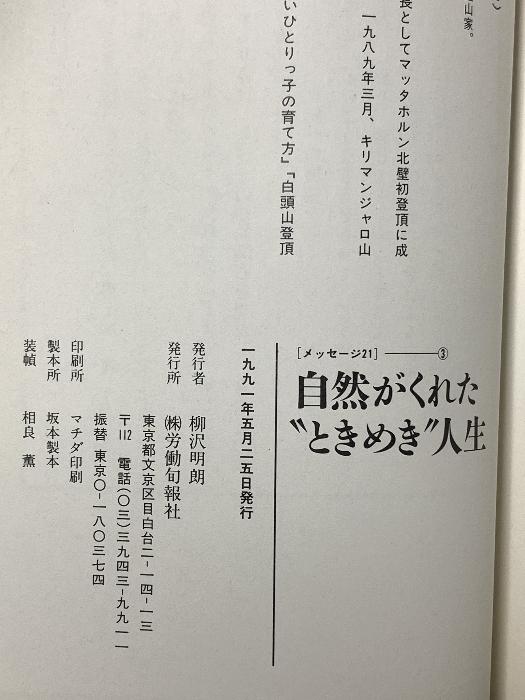 こ)
山家。
長としてマッタホルン北壁初登頂に成
一九八九年三月、キリマンジャロ山
いひとりっ子の育て方」「白頭山登頂
[メッセージ21]―――③
自然がくれた
〝ときめき〟人生
一九九一年五月二五日発行
発行者 柳沢明朗
発行所 ㈱労働旬報社
東京都文京区目白台二-一四-一三
〒112 電話(〇三)三九四三-九九一一
振替 東京〇-一八〇三七四
印刷所 マチダ印刷
製本所 坂本製本
装幀 相良 薫